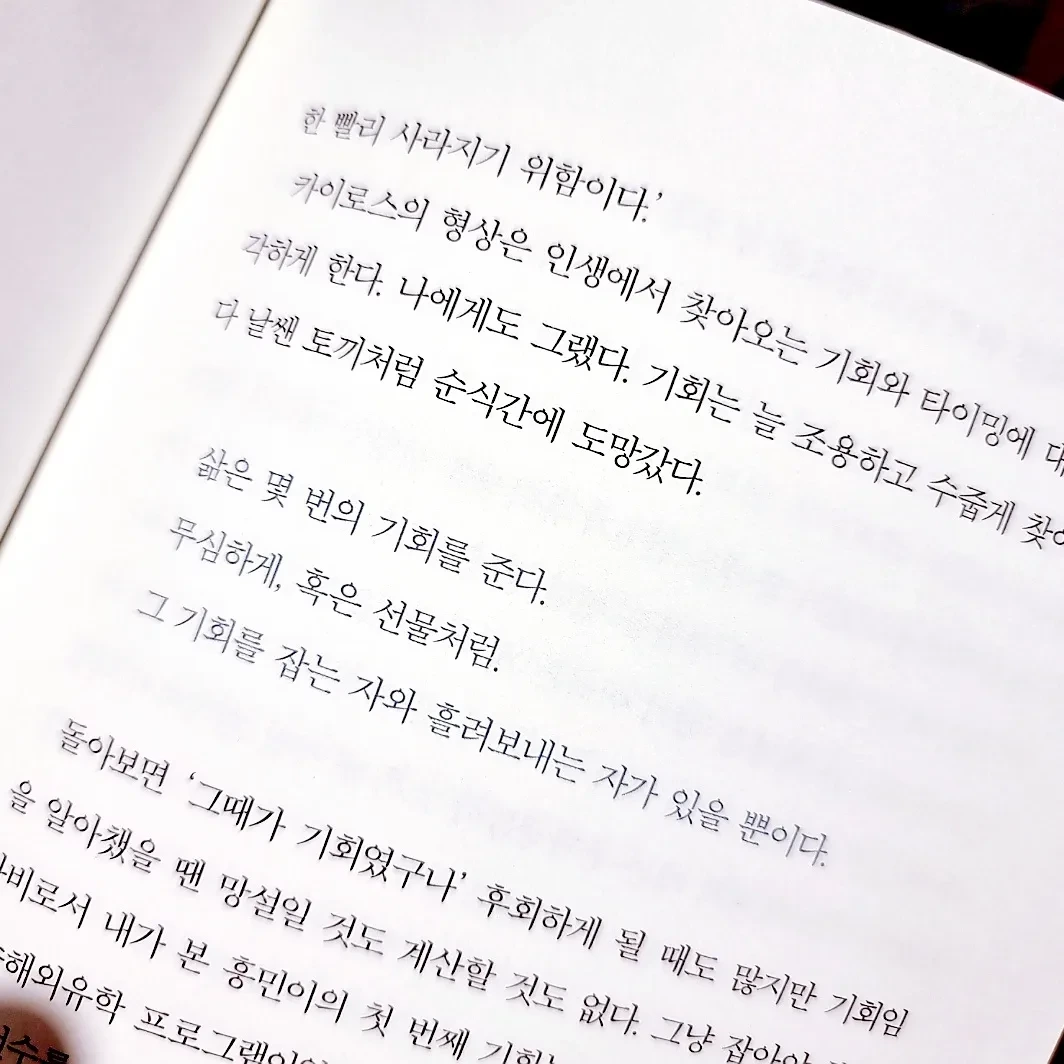 한 빨리 사라지기 위함이다.’
카이로스의 형상은 인생에서 찾아오는 기회와 타이밍에 대
각하게 한다. 나에게도 그랬다. 기회는 늘 조용하고 수줍게 찾아
다 날쌘 토끼처럼 순식간에 도망갔다.
삶은 몇 번의 기회를 준다.
무심하게, 혹은 선물처럼.
그 기회를 잡는 자와 흘려보내는 자가 있을 뿐이다.
돌아보면 ‘그때가 기회였구나’ 후회하게 될 때도 많지만 기회임
을 알아챘을 땐 망설일 것도 계산할 것도 없다. 그냥 잡아야
비로서 내가 본 흥민이의 첫 번째 기회는
해외유학 프로그램이었